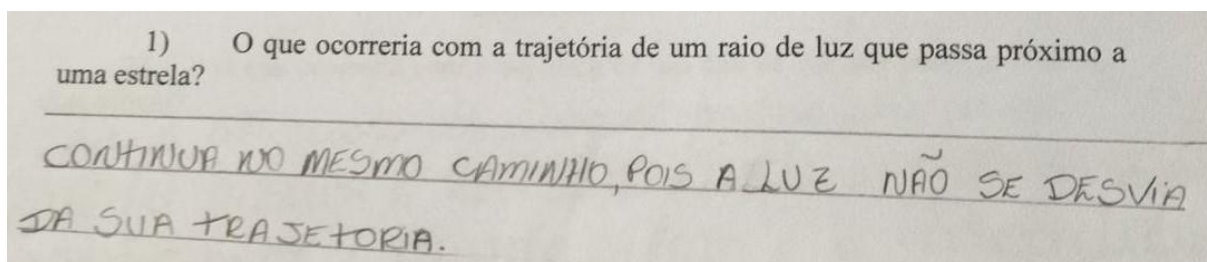 1) O que ocorreria com a trajetória de um raio de luz que passa próximo a
uma estrela?
CONTINUA NO MESMO CAMINHO, POIS A LUZ NÃO SE DESVIA
DA SUA TRAJETORIA.